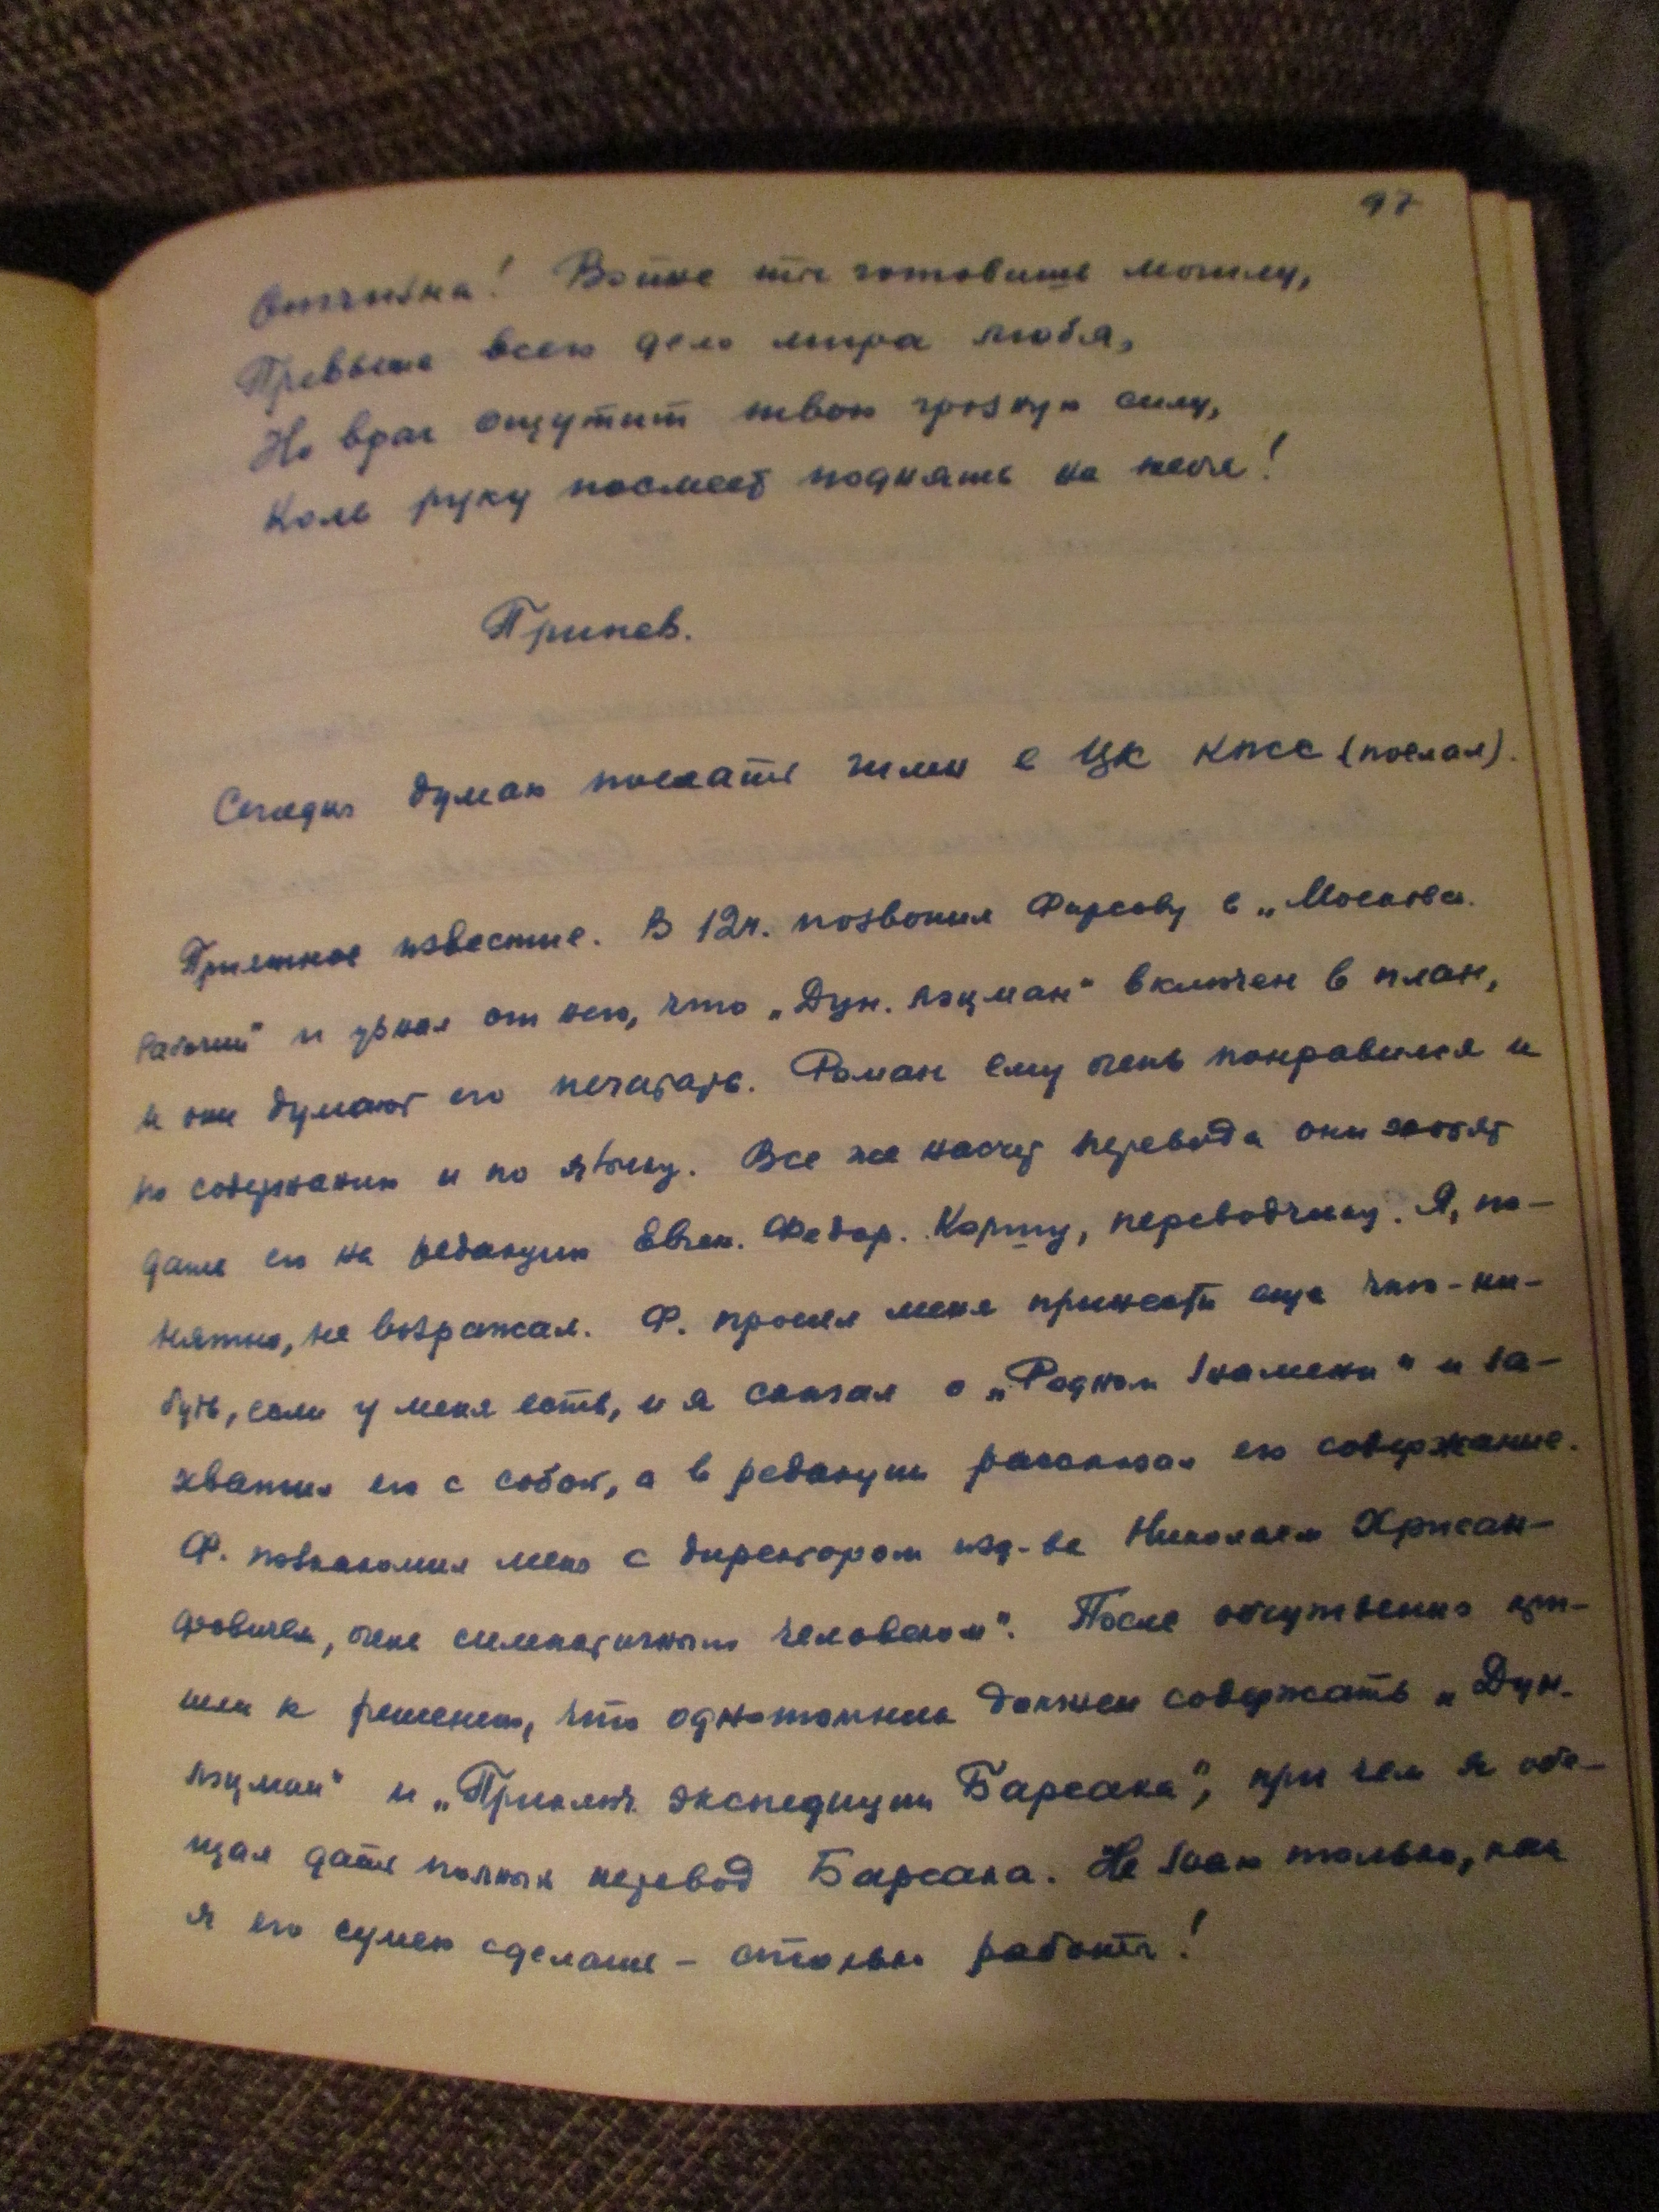 97
Отчизна! Войне ты готовишь могилу,
Превыше всего дело мира любя,
Но враг ощутит твою грозную силу,
Коль руку посмеет поднять на тебя!
Припев.
Сегодня думаю послать гимн в ЦК КПСС (послал).
Приятное известие. В 12 ч. позвонил Фирсову в „Московск.
рабочий" и узнал от него, что „Дун. лоцман" включен в план,
и они думают его печатать. Роман ему очень понравился и
по содержанию и по языку. Все же насчет перевода они хотят
дать его на редакцию Евген. Федор. Корту, переводчику. Я, по-
нятно, не возражал. Ф. просил меня принести еще что-ни-
будь, если у меня есть, и я сказал о „Родном знамени" и за-
хватил его с собой, а в редакции рассказал его содержание.
Ф. познакомил меня с директором изд-ва Николаем Хрисан-
фовичем, очень симпатичным человеком". После обсуждения при-
шли к решению, что однотомник должен содержать „Дун.
лоцман" и „Приключ. экспедиции Барсака", при чем я обе-
щал дать полный перевод Барсака. Не знаю только, как
я его сумею сделать – столько работы!